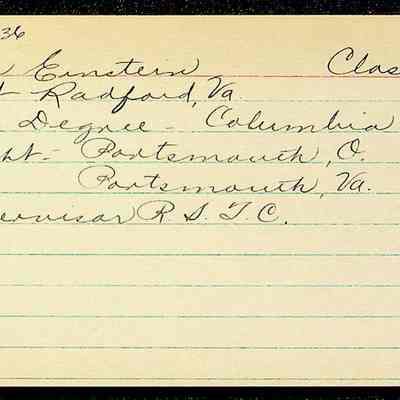 36
Einstein Clas
Radford, Va.
Degree - Columbia
ht - Portsmouth, O.
Portsmouth, Va.
ervisor R. S. T. C.